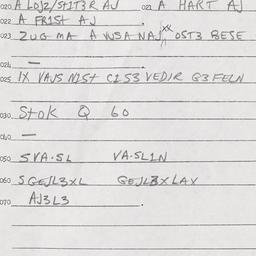 020 A LOJ2/STIT3R AJ 021 A HART AJ
022 A FRIST AJ .
023 ZUG MA A VUSA NAJ XX OST3 BESE
024 —
025 IX VAVS NIST C2S3 VEDIR G3FELN
030 Stok Q 60
040 —
050 SVA·SL VA·SLIN
060 SGEJL3XL GEJL3XLAV
070 AJ3L3 .